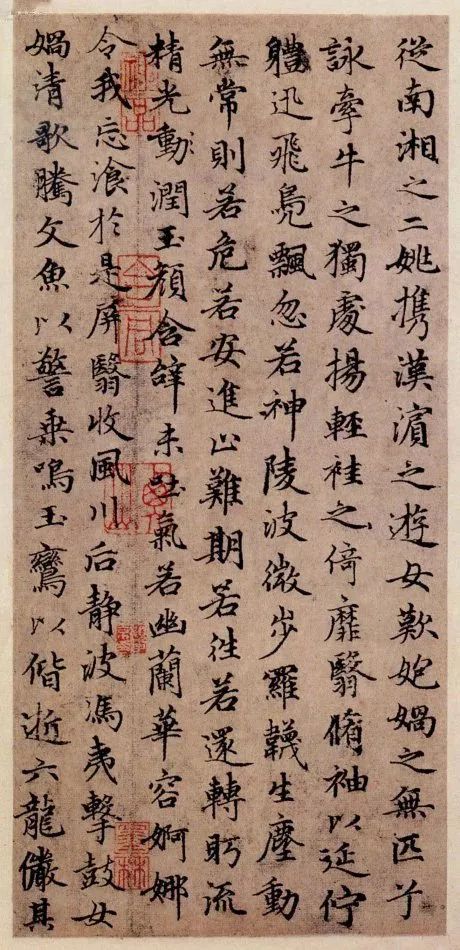 從南湘之二姚携漢濱之遊女歎㚿媧之無匹兮
詠牽牛之獨處揚輕袿之倚靡翳脩袖以延佇
軆迅飛鳧飄忽若神陵波微步羅韈生塵動
無常則若危若安進止難期若往若還轉眄流
精光動潤玉顔含辝未吐氣若幽蘭華容婀娜
令我忘飡於是屏翳收風川后静波馮夷擊鼓女
媧清歌騰文魚以警乗鳴玉鸞以偕逝六龍儼其